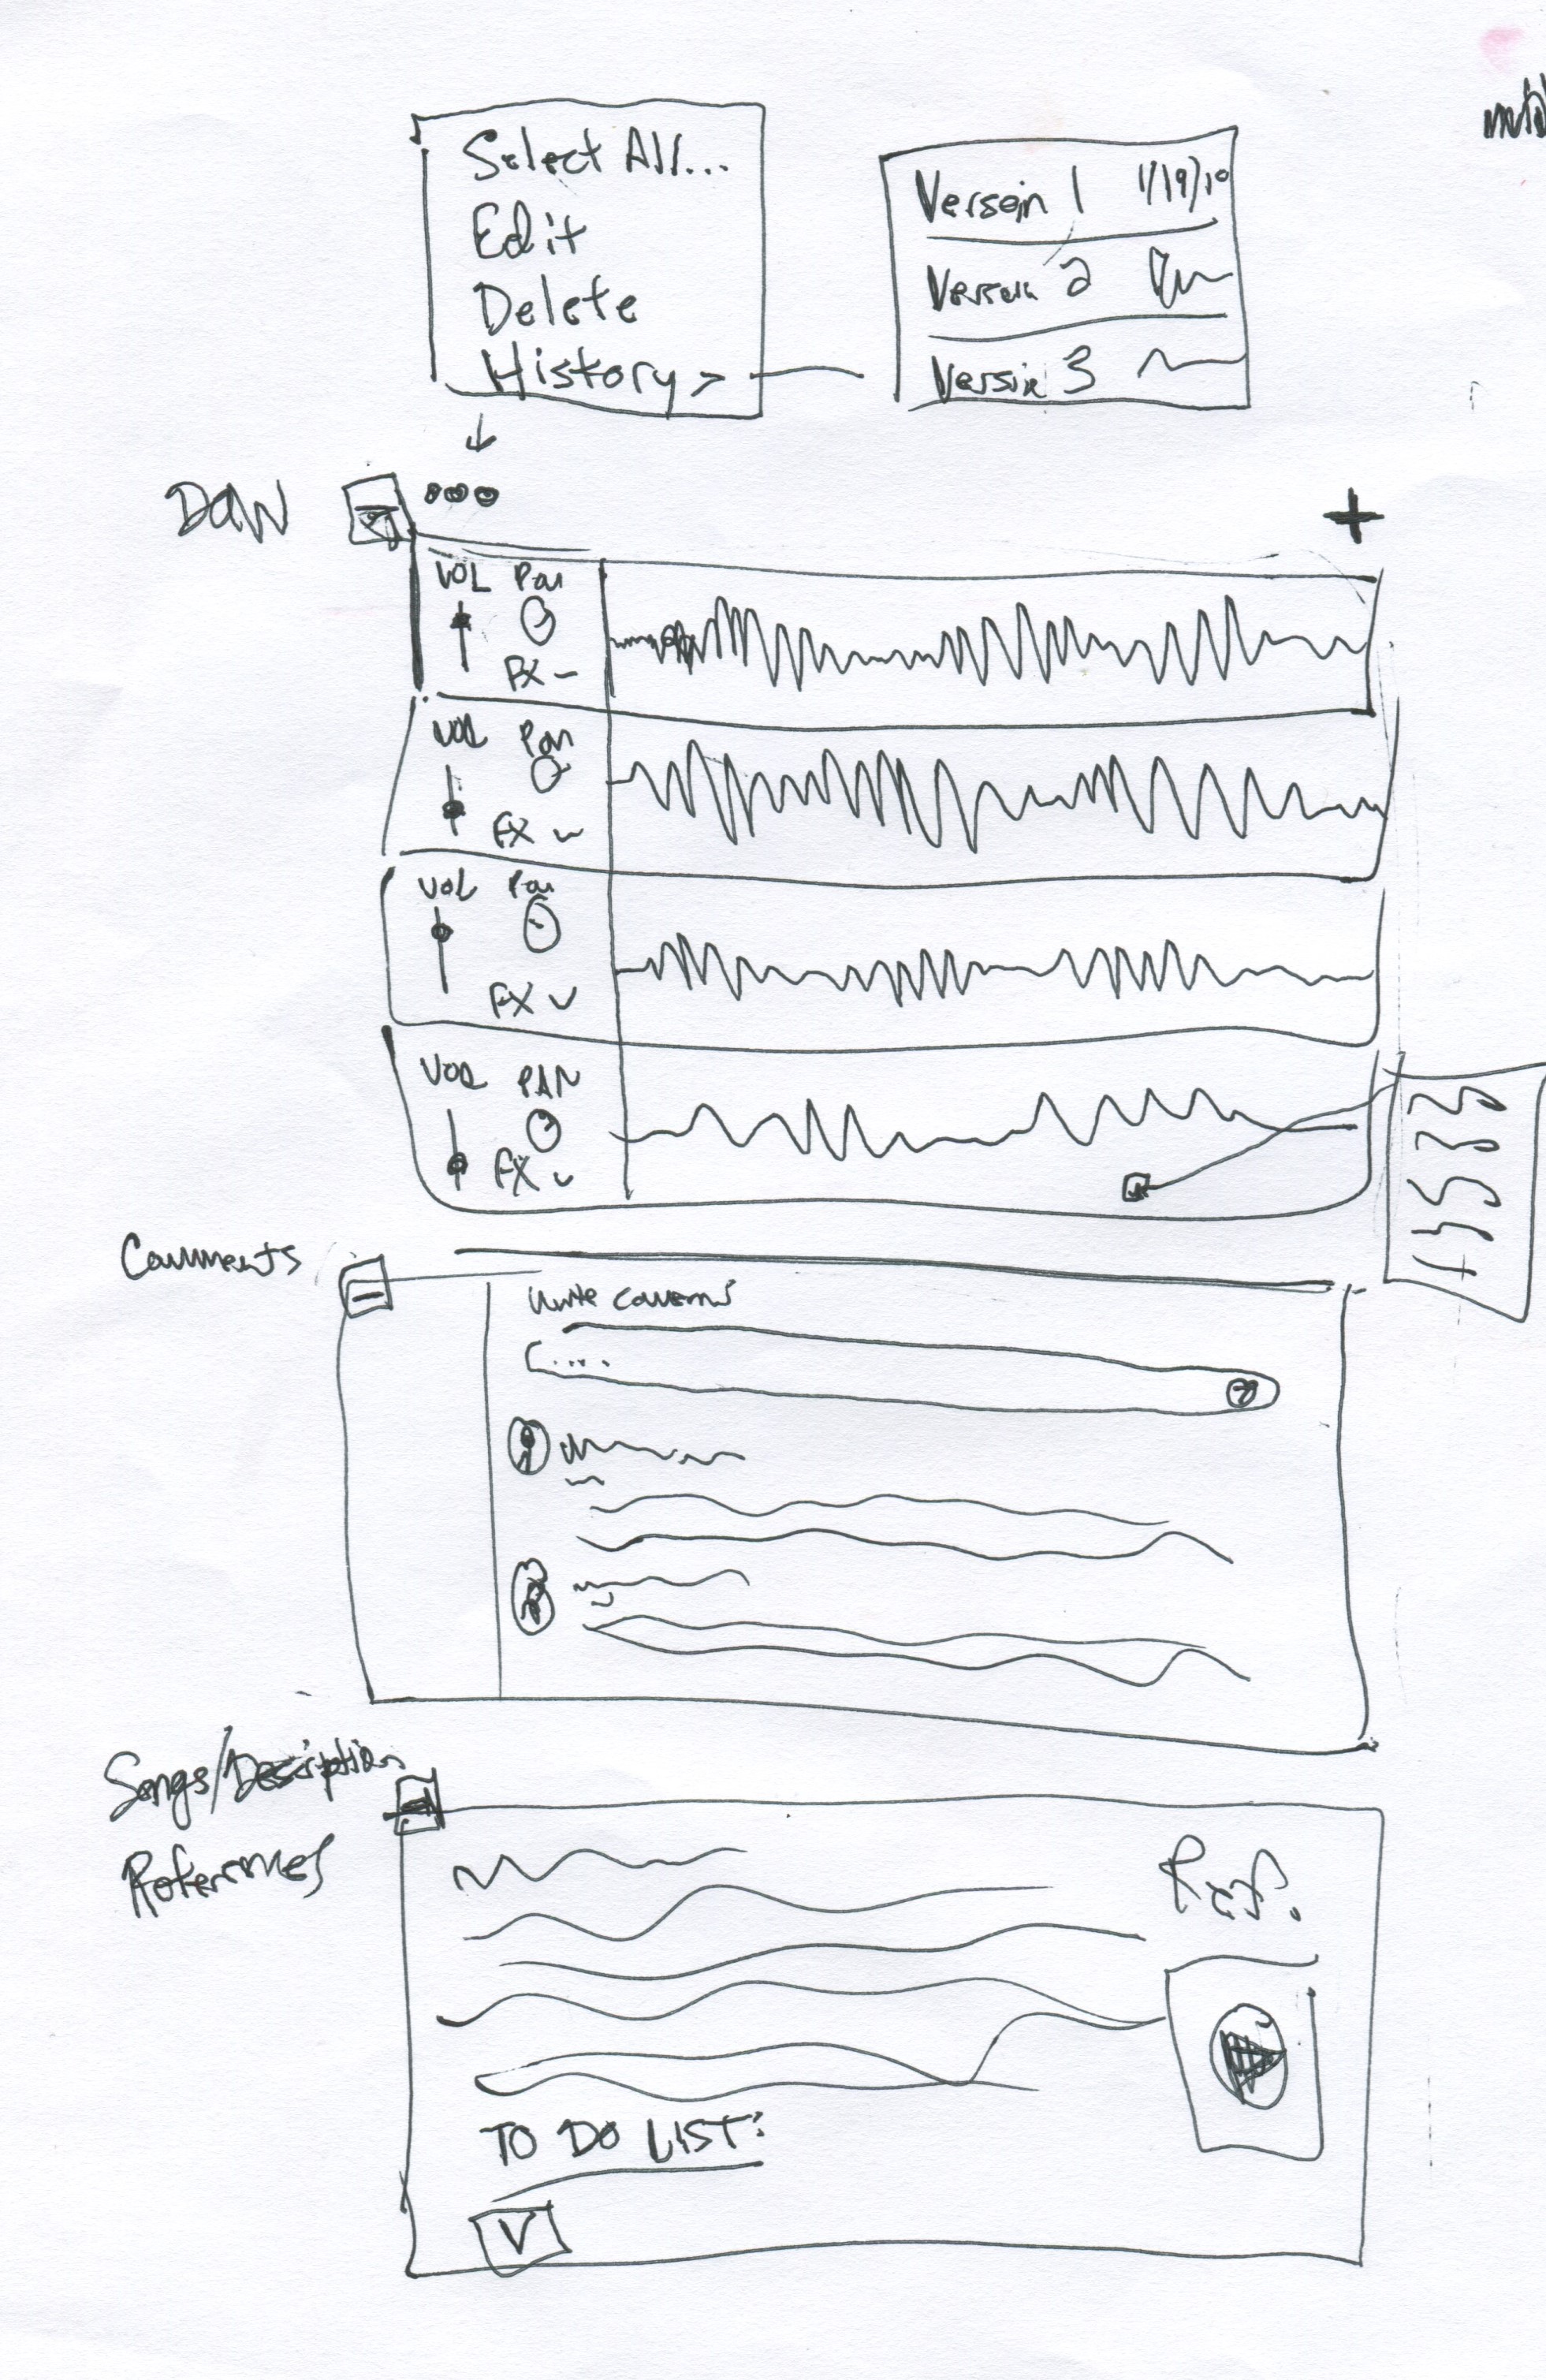 Select All...
Edit
Delete
History >
Versoin 1 1/19/10
Version 2
Version 3
DAW
+
VOL Pan
FX
VOL Pan
FX
VOL Pan
FX
VOL PAN
FX
Comments
Write comments
....
Songs/Description
References
Ref.
TO DO LIST:
V